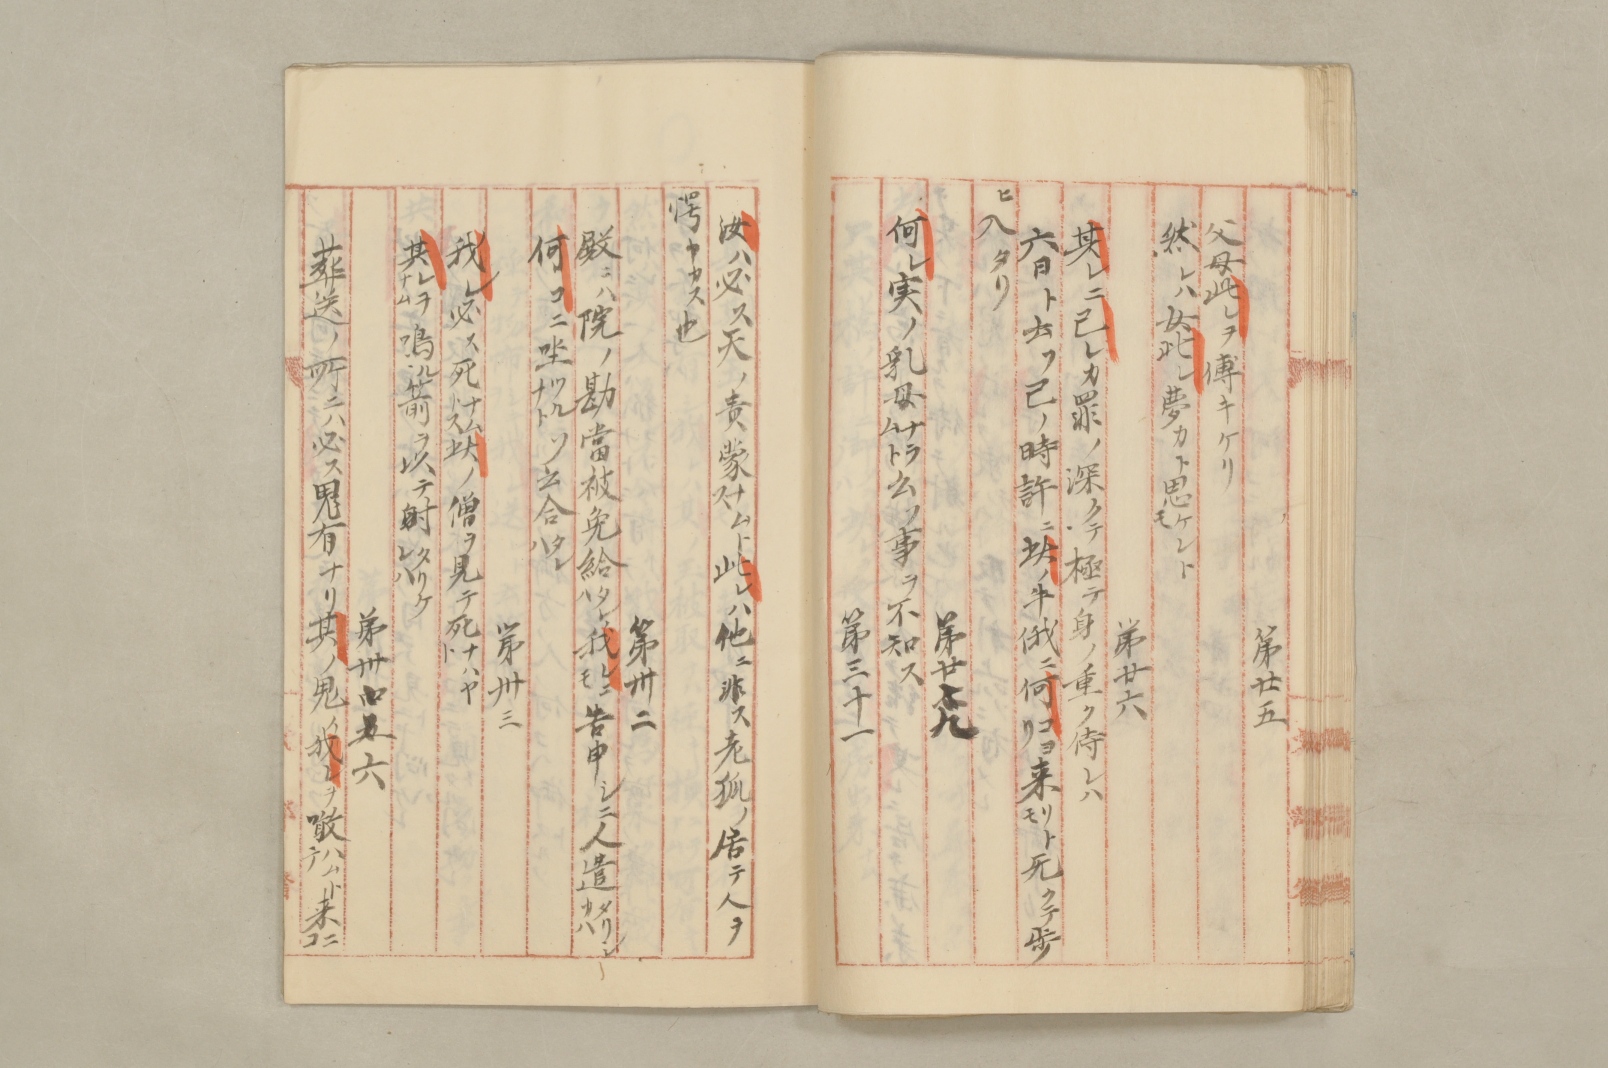 第廿五
父母此レヲ傅キケリ
然レハ女此レ夢カト思ケレトモ
第廿六
其レニ己レカ罪ノ深クテ極テ身ノ重ク侍レハ
六日ト云フ己ノ時許ニ此ノ牛俄ニ何コヨリ来リトモ死クテ歩
ヒ入タリ
第廿九
何レ実ノ乳母ナラムト云フ事ヲ不知ス
第三十一
汝ハ必ス天ノ責蒙ナムトス此レハ他ニ非ス老狐ノ居テ人ヲ
愕ヤカス也
第卅二
殿ニハ院ノ勘當被免給タレハ我レニモ告申シニ人遣タリシカハ
何コニ坐ツルナトソ云合タレハ
第卅三
我レ必ス死ナムトス此ノ僧ヲ見テ死ナハヤト
其レヲナム鳴箭ヲ以テ射タリケレハ
第卅六
葬送ノ所ニハ必ス鬼有ナリ其ノ鬼ノ我レヲ噉ハムトテ来ニコ